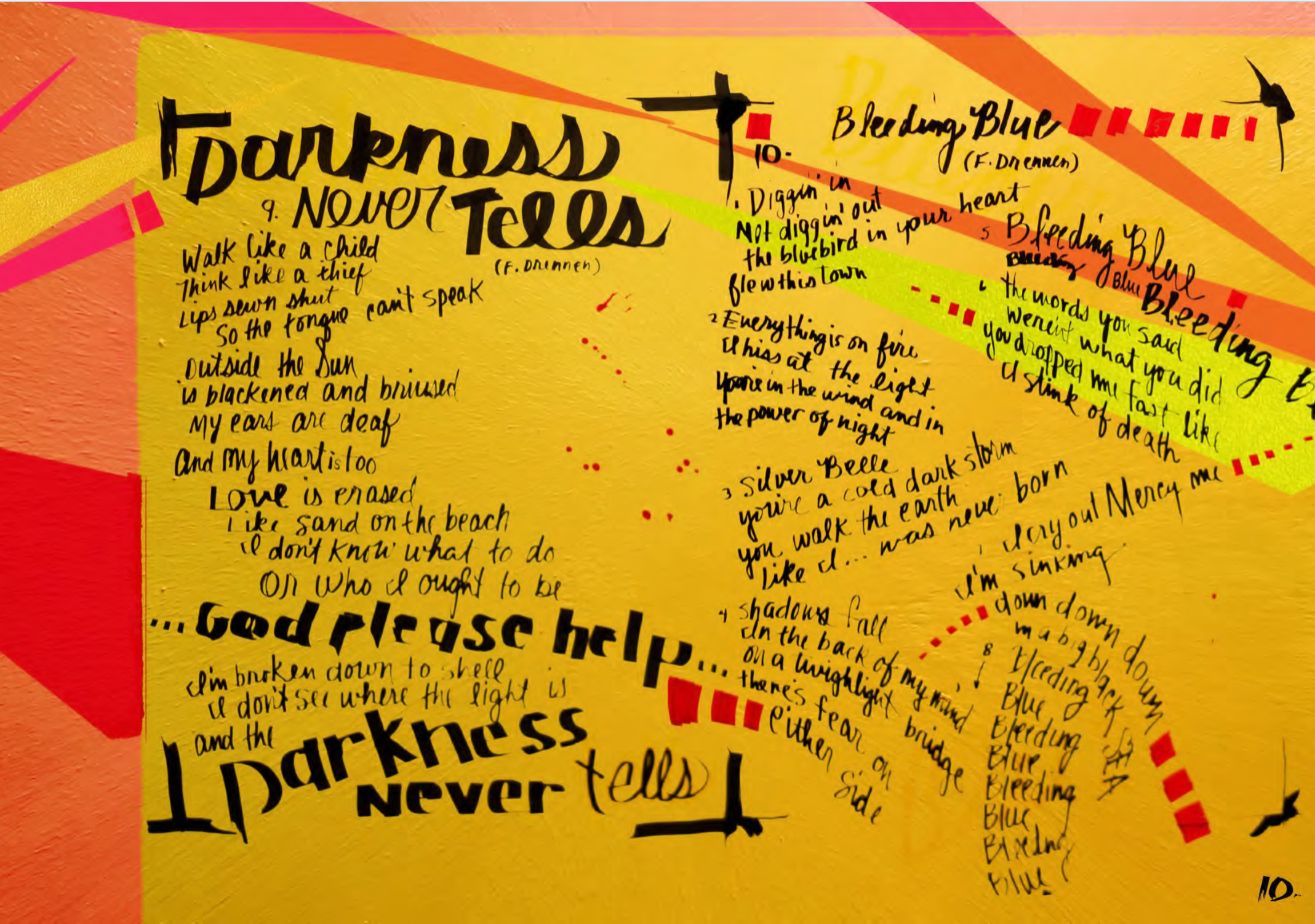 Darkness
9. Never Tells
(F. Drennen)
Walk like a child
Think like a thief
Lips sewn shut
So the tongue can't speak
Outside the Sun
is blackened and briused
My ears are deaf
And my heart is too
Love is erased
Like sand on the beach
I don't know what to do
Or who I ought to be
...God please help...
I'm broken down to shell
I don't see where the light is
and the
Darkness
Never tells
Bleeding Blue
10.
(F. Drennen)
1. Diggin' in
Not diggin' out
the bluebird in your heart
flew this town
2 Everything is on fire
I hiss at the light
You're in the wind and in
the power of night
3 Silver Belle
you're a cold dark storm
you walk the earth
Like I... was never born
4 shadows fall
In the back of my mind
on a twighlight bridge
there's fear on
either side
5 Bleeding Blue
Bleeding Blue Bleeding
6 the words you said
weren't what you did
you dropped me fast like
a stink of death
I cry out Mercy me
I'm sinking
down down down
in a big black sea
8 Bleeding
Blue
Bleeding
Blue
Bleeding
Blue
Bleeding
Blue
10.